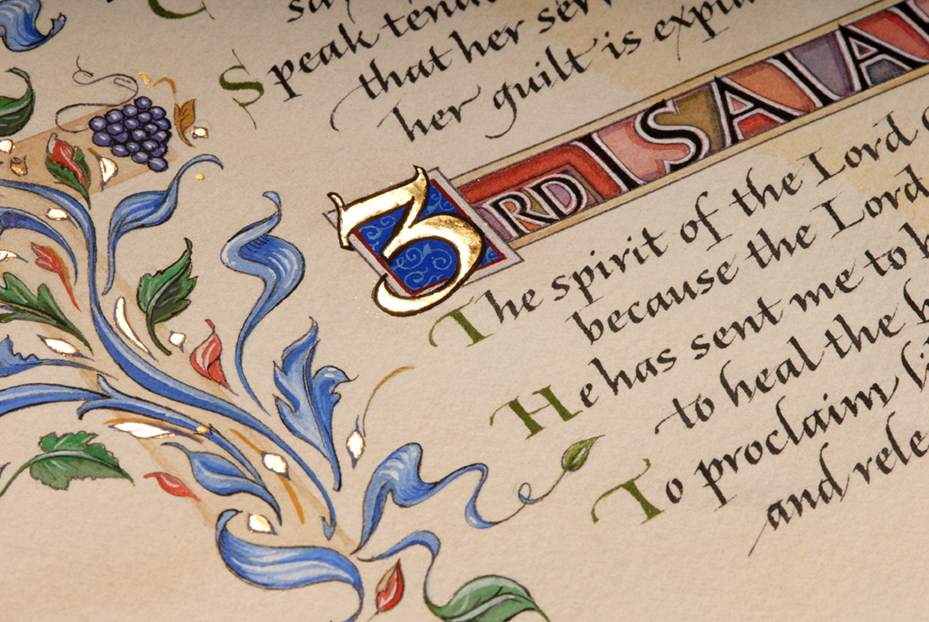 Speak tend
that her ser
her guilt is expia
3RD ISAIA
The spirit of the Lord
because the Lord
He has sent me to
to heal the
To proclaim li
and rele